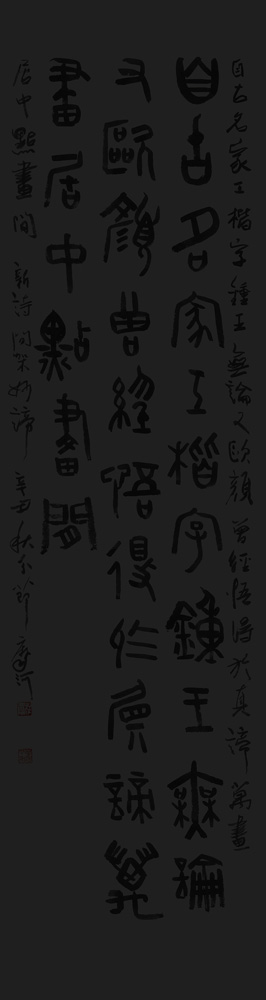 自古名家工楷字鍾王無論又歐顏曾經悟得於真諦萬畫
自古名家工楷字鍾王無論
又歐顏曾經悟得於真諦萬
畫居中點畫間
居中點畫間 新詩 妙諦 辛丑秋